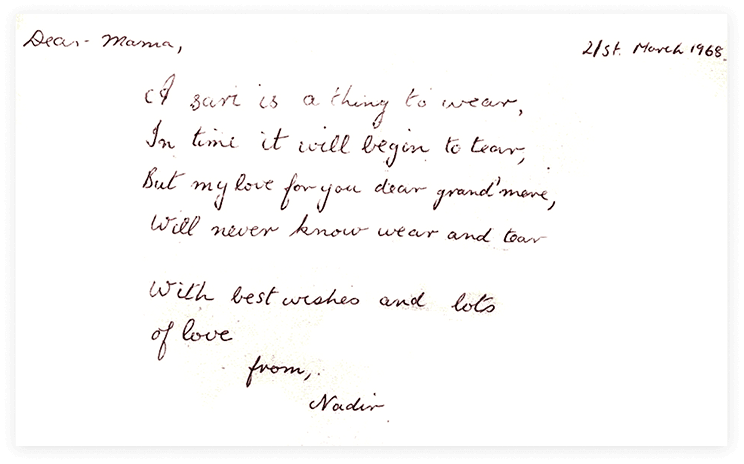 Dear Mama,
21st. March 1968.
A sari is a thing to wear,
In time it will begin to tear,
But my love for you dear grand'mere,
Will never know wear and tear
With best wishes and lots
of love
from,
Nadir